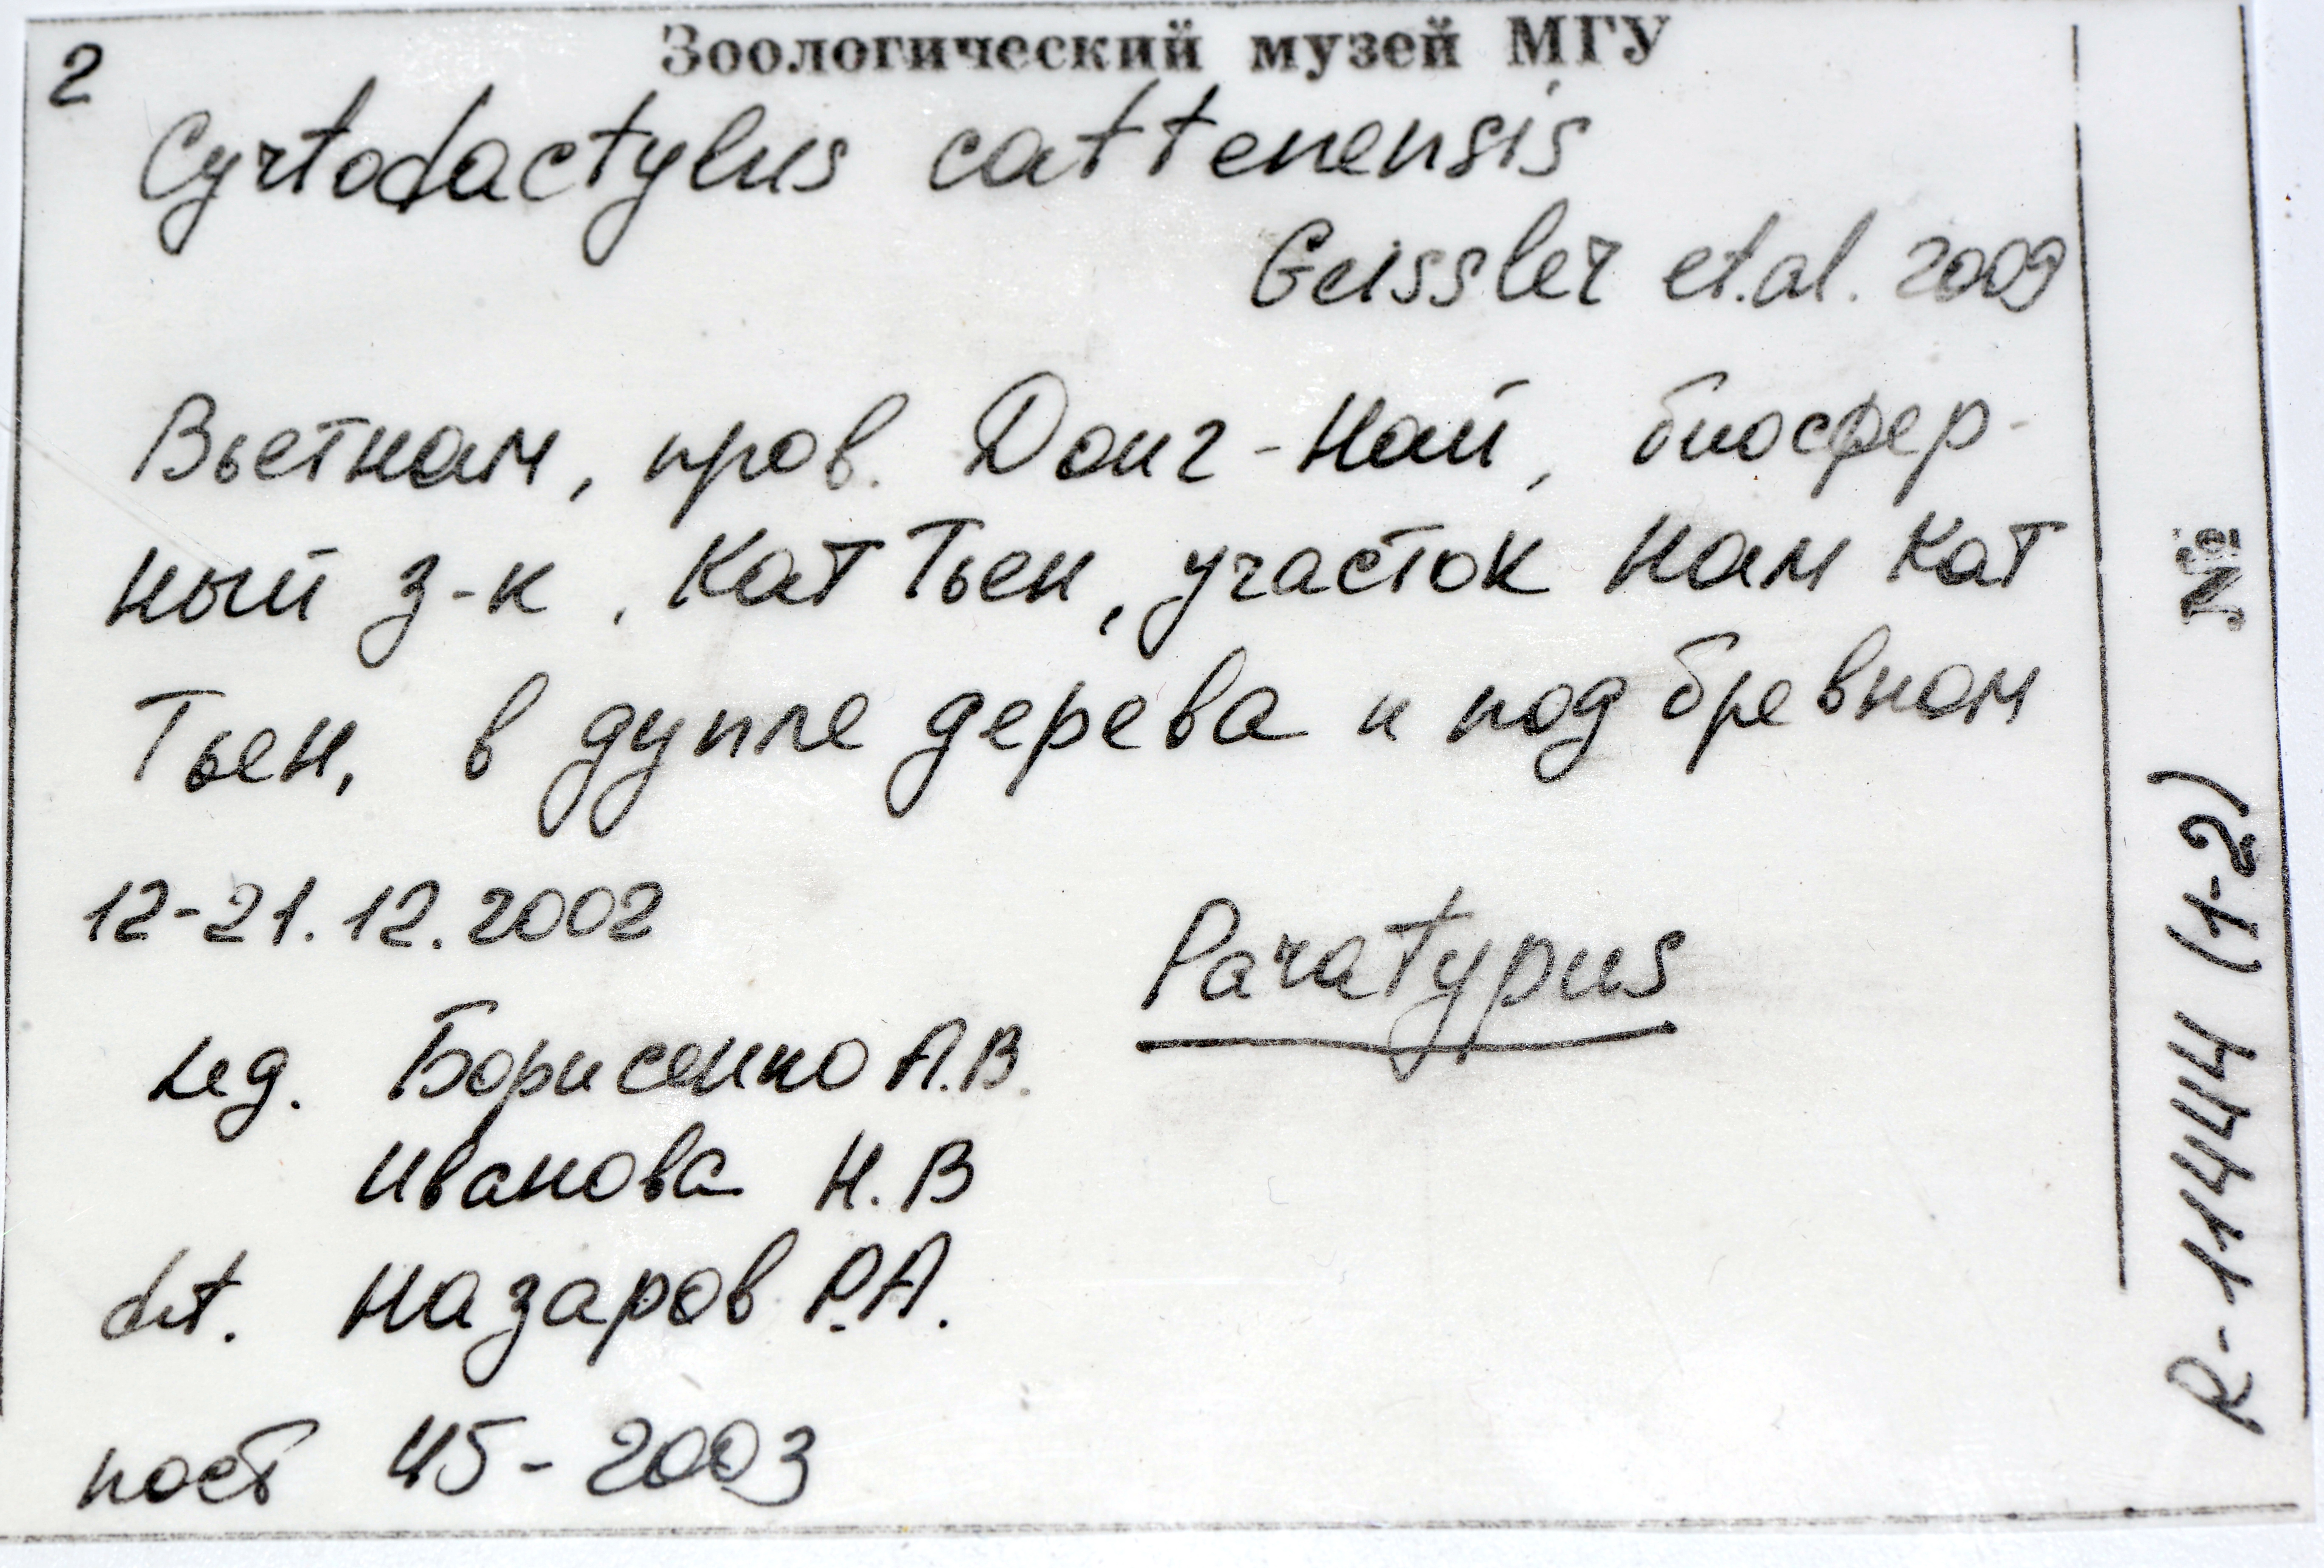 Зоологический музей МГУ
2
Cyrtodactylus cattenensis
Geissler et.al. 2009
Вьетнам, пров. Донг-Най, биосфер-
ный з-к, Кат Тьен, участок Нам Кат
Тьен, в дупле дерева и под бревном
12-21.12.2002
Paratypus
Leg. Борисенко А.В.
Иванова Н.В
det. Назаров Р.А.
пост 45-2003
№ R-11444 (1-2)